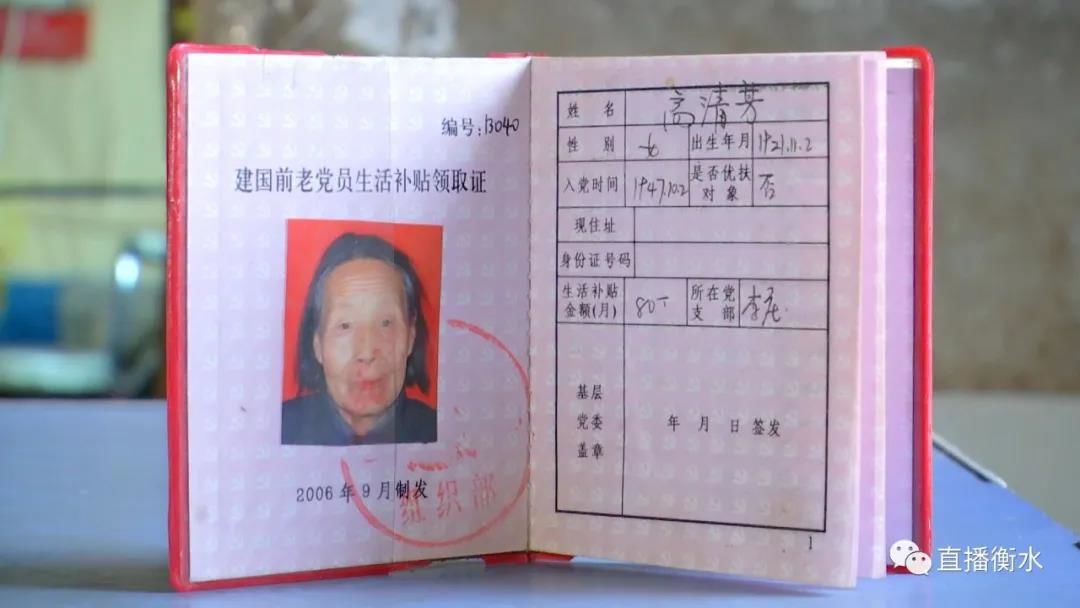 编号:B040
建国前老党员生活补贴领取证
2006年9月制发
组织部
姓名 高清芳
性别 女 出生年月 1921.11.2
入党时间 1947.10.2 是否优扶对象 否
现住址
身份证号码
生活补贴金额(月) 80 所在党支部 李庄
基层党委盖章 年 月 日 签发
1
直播衡水